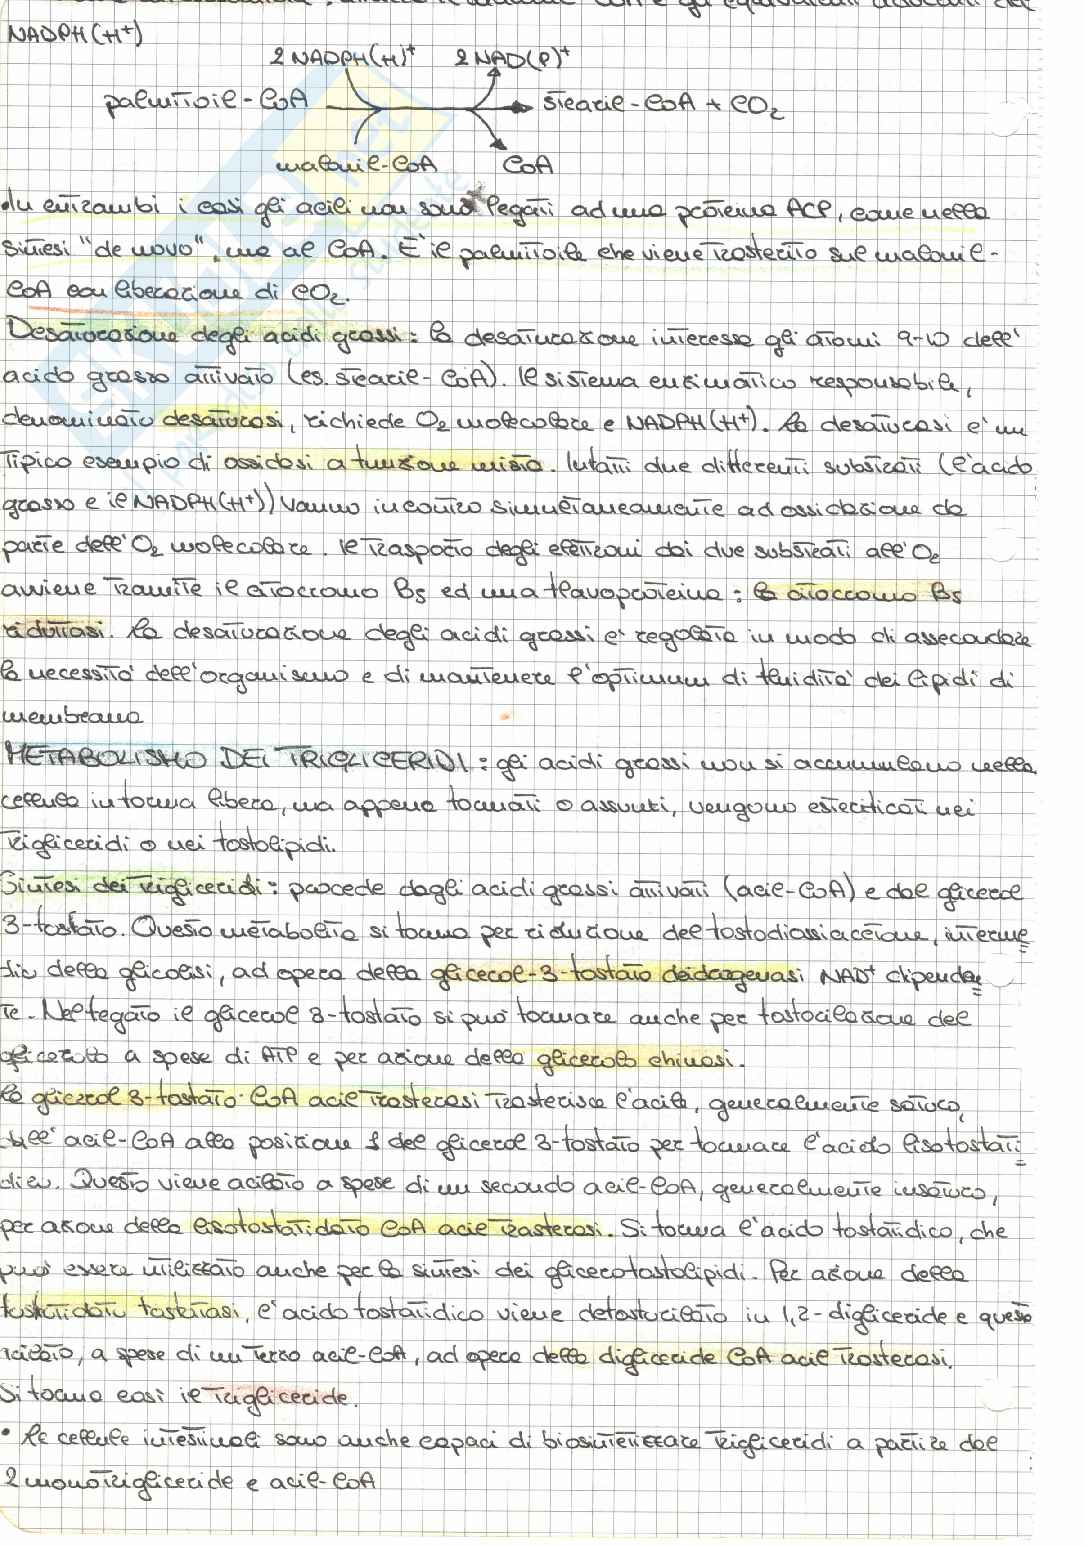 NADPH(H⁺)
2 NADPH(H)⁺ 2 NAD(P)⁺
palmitoil-CoA stearil-CoA + CO₂
malonil-CoA CoA
In entrambi i casi gli acili non sono legati ad una proteina ACP, come nella
sintesi "de novo", ma al CoA. È il palmitoile che viene trasferito sul malonil-
CoA con liberazione di CO₂.
Desaturazione degli acidi grassi: la desaturazione interessa gli atomi 9-10 dell'
acido grasso attivato (es. stearil-CoA). Il sistema enzimatico responsabile,
denominato desaturasi, richiede O₂ molecolare e NADPH(H⁺). La desaturasi è un
tipico esempio di ossidasi a funzione mista. Infatti due differenti substrati (l'acido
grasso e il NADPH(H⁺)) vanno incontro simultaneamente ad ossidazione da
parte dell'O₂ molecolare. Il trasporto degli elettroni dai due substrati all'O₂
avviene tramite il citocromo B₅ ed una flavoproteina: la citocromo B₅
riduttasi. La desaturazione degli acidi grassi è regolata in modo di assecondare
la necessità dell'organismo e di mantenere l'optimum di fluidità dei lipidi di
membrana
METABOLISMO DEI TRIGLICERIDI: gli acidi grassi non si accumulano nella
cellula in forma libera, ma appena formati o assunti, vengono esterificati nei
trigliceridi o nei fosfolipidi.
Sintesi dei trigliceridi: procede dagli acidi grassi attivati (acil-CoA) e dal glicerol
3-fosfato. Questo metabolita si forma per riduzione del fosfodiossiacetone, interme
dio della glicolisi, ad opera della glicerol-3-fosfato deidrogenasi NAD⁺ dipenden
te. Nel fegato il glicerol 3-fosfato si può formare anche per fosforilazione del
glicerolo a spese di ATP e per azione della glicerolo chinasi.
La glicerol 3-fosfato CoA acil trasferasi trasferisce l'acile, generalmente saturo,
dell'acil-CoA alla posizione 1 del glicerol 3-fosfato per formare l'acido lisofosfati
dico. Questo viene acilato a spese di un secondo acil-CoA, generalmente insaturo,
per azione della lisofosfatidato CoA acil trasferasi. Si forma l'acido fosfatidico, che
può essere utilizzato anche per la sintesi dei glicerofosfolipidi. Per azione della
fosfatidato fosfatasi, l'acido fosfatidico viene defosforilato in 1,2-digliceride e questo
acilato, a spese di un terzo acil-CoA, ad opera della digliceride CoA acil trasferasi.
Si forma così il trigliceride.
• Le cellule intestinali sono anche capaci di biosintetizzare trigliceridi a partire dal
2 monotrigliceride e acil-CoA